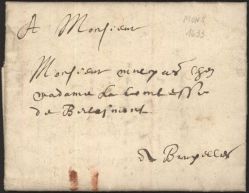 A Monsieur
MONS
1633
Monsieur chez
madame la Comtesse
de Berlaimont
A Bruxelles